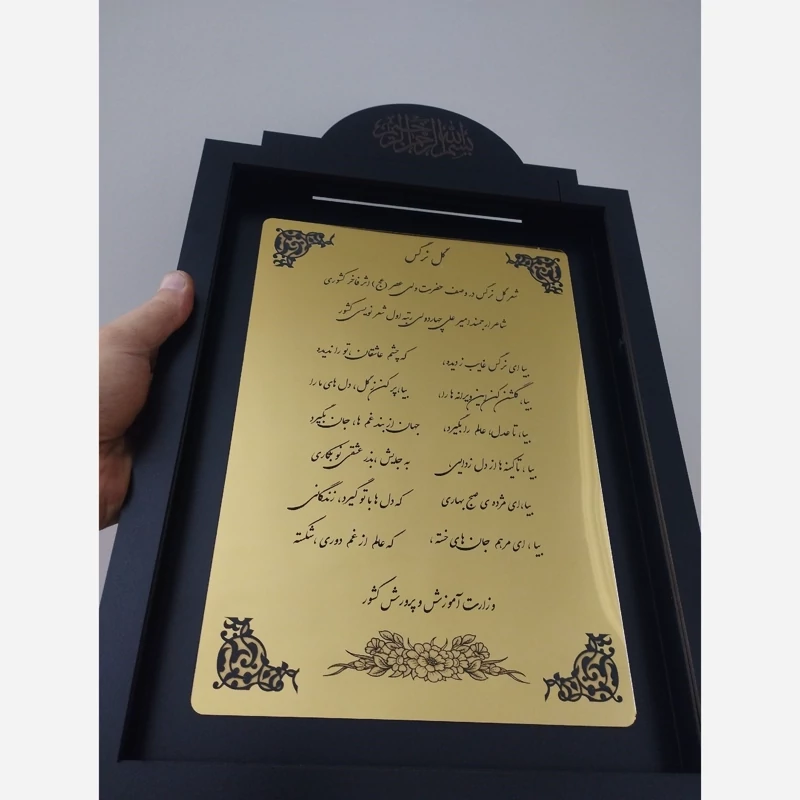 بسم الله الرحمن الرحیم
گل نرگس
شعر گل نرگس در وصف حضرت ولی عصر (عج) اثر فاخر کشوری
شاعر ارجمند امیر علی چهاردولی رتبه اول شعر نویسی کشور
بیا ای نرگس غایب ز دیده، که چشم عاشقان، تو را ندیده
بیا، گلشن کن این ویرانه ها را، بیا، پر کن ز گل، دل های ما را
بیا، تا عدل، عالم را بگیرد، جهان از بند غم ها، جان بگیرد
بیا، تا کینه ها از دل زدایی، به جدیش، بذر عشقی نو بکاری
بیا، ای مژده ی صبح بهاری که دل ها با تو گیرد، زندگانی
بیا، ای مرهم جان های خسته، که عالم از غم دوری، شکسته
وزارت آموزش و پرورش کشور